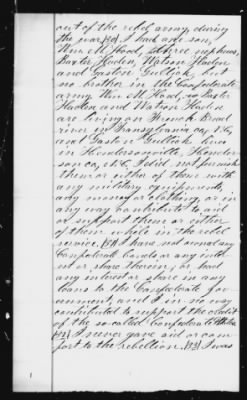 out of the rebel army, during
the war, [28] I had one son,
Wm. M. Hood, three nephews,
Baxter Haden, Watson Haden
and Gaston Gullick, but
no brother in the Confederate
army. Wm. M. Hood,
Haden and Watson Haden
are living on French Broad
river in Transylvania co., N.C.,
and Gaston Gullick lives
in Hendersonville, Hender-
son co., N.C. I did not furnish
them or either of them with
any military equipments,
any money or clothing, or in
any way contribute to aid
or support them or either
of them while in the rebel
service. [29] I have not owned any
Confederate bonds or any inter-
est or share therein, or had
any interest or share in any
loans to the Confederate Gov-
ernment, and I in no way
contributed to support the credit
of the so-called Confederate States.
I never gave aid or com-
fort to the rebellion. I was